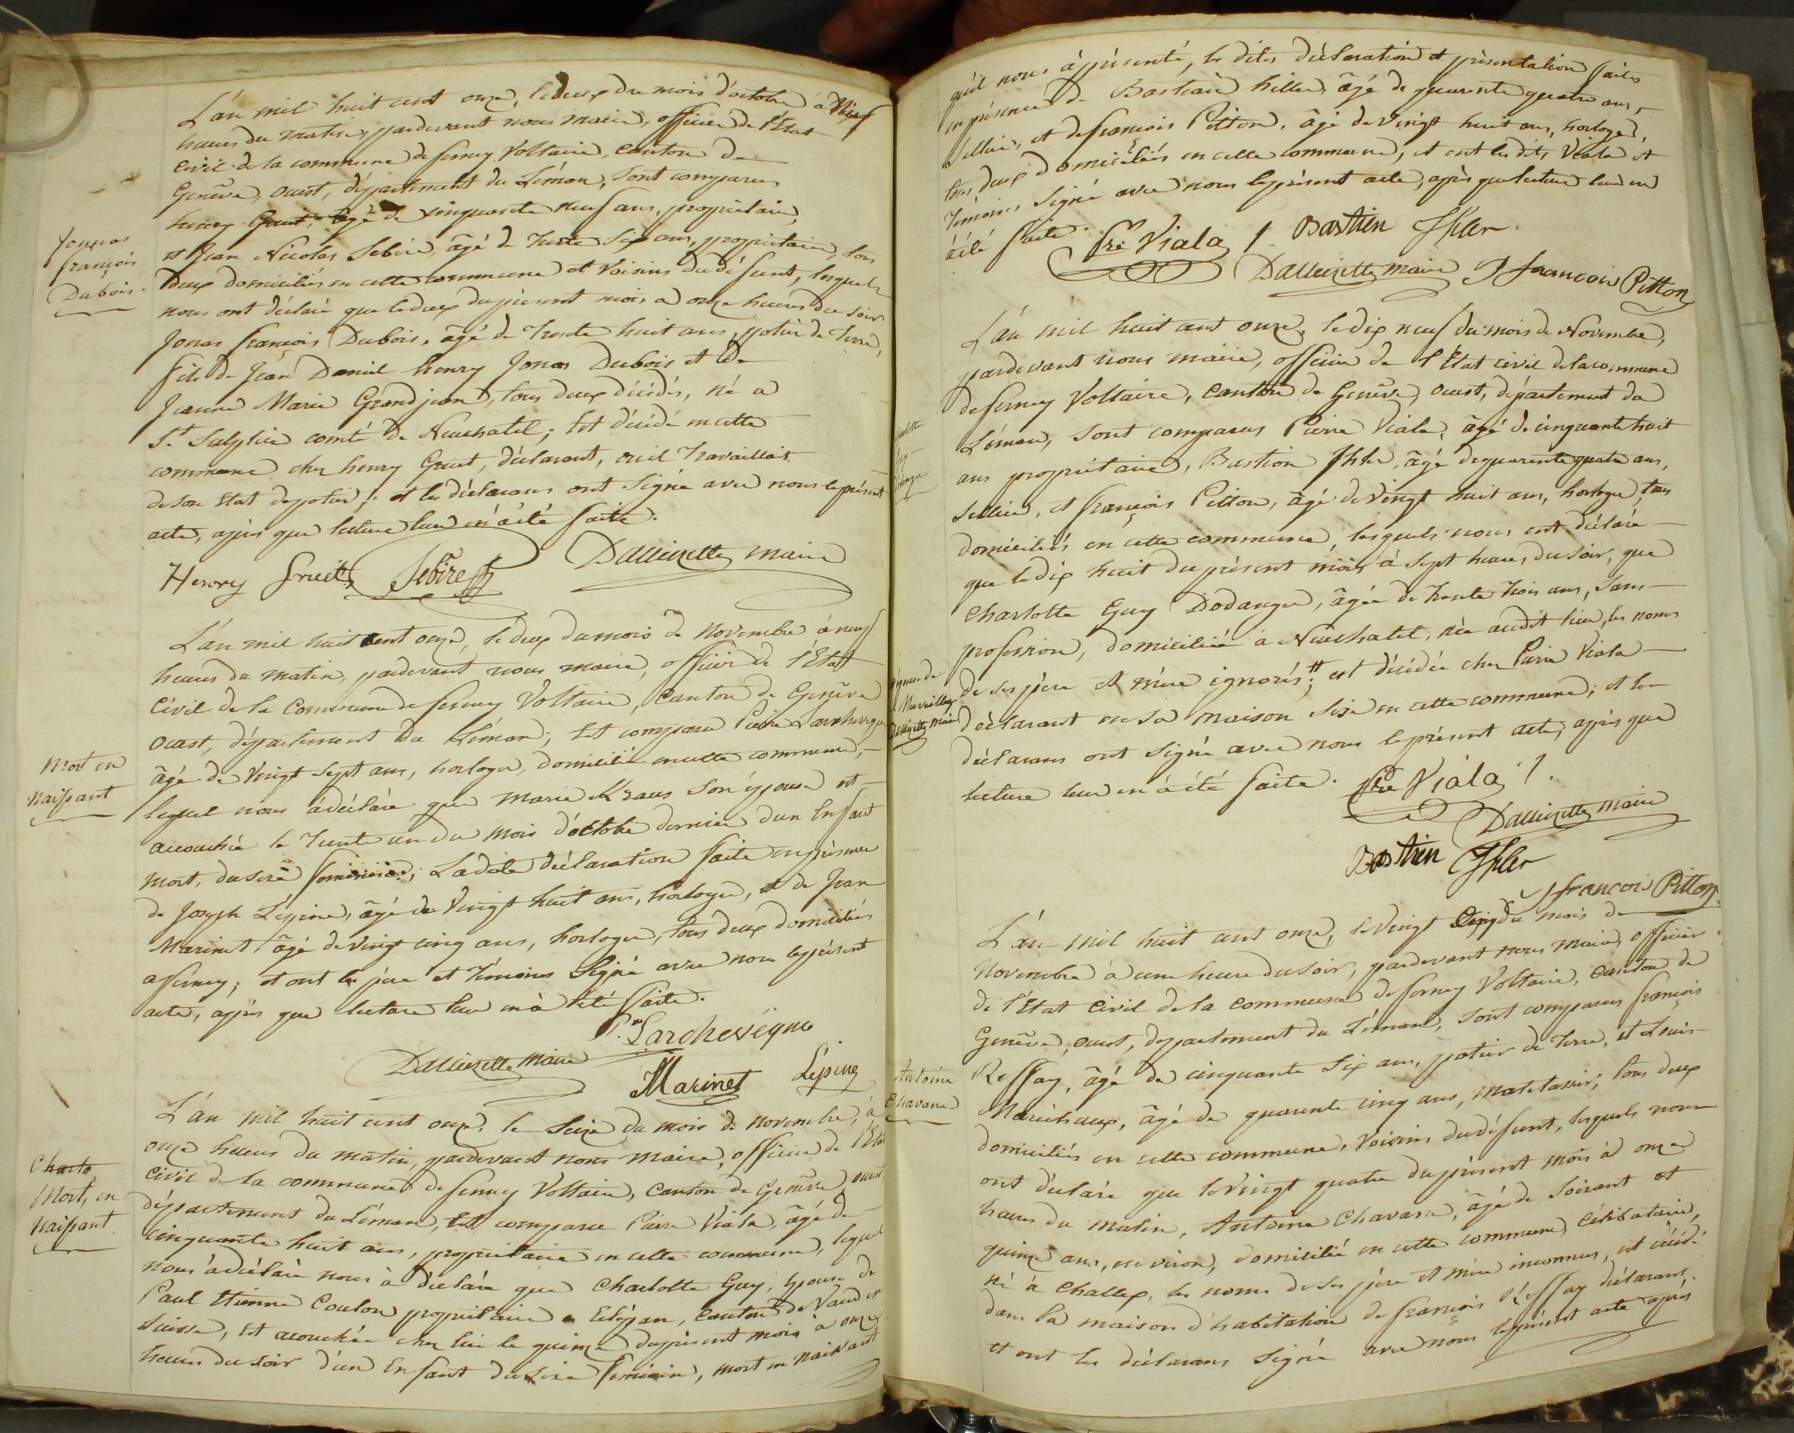 L'an mil huit cent onze, le deux du mois d'octobre à neuf
heures du matin, pardevant nous maire, officier de l'Etat
civil de la commune de ferney Voltaire, canton de
Genêve, ouest, département du Léman, sont comparus
henry Gruet, âgé de cinquante neuf ans, propriétaire,
Jonas
françois
Dubois.
et Jean Nicolas Sebire âgé de Trente Six ans, propriétaire, tous
deux domiciliés en cette commune et Voisins du défunt, lesquels
nous ont déclaré que le deux du présent mois à onze heures du soir
Jonas françois Dubois, âgé de Trente huit ans, potier de Terre,
fils de Jean Daniel henry Jonas Dubois et de
Jeanne Marie Grandjean, tous deux décédés, né a
St. Sulpice comté de Neuchatel; Est décédé en cette
commune chez henry Gruet, déclarant, où il Travaillait
de son Etat de potier; et les déclarans ont Signé avec nous le présent
acte, après que lecture leur en a été faite.
Henry Gruet Sebire Dallizette maire
L'an mil huit cent onze, le deux du mois de Novembre à neuf
heures du matin, pardevant nous maire, officier de l'Etat
Civil de la Commune de ferney Voltaire, Canton de Genêve
ouest, département du Léman; Est comparu Pierre Larchevêque
Mort en
naissant
âgé de Vingt Sept ans, horloger, domicilié en cette commune,
lequel nous a déclaré que Marie Kraus Son épouse est
accouchée le Trente un du mois d'octobre dernier d'un Enfant
mort, du sexe féminin; Ladite déclaration faite en présence
de Joseph Lépine, âgé de Vingt huit ans, horloger, et de Jean
Marinet âgé de vingt cinq ans, horloger, tous deux domiciliés
a ferney; et ont le père et Témoins Signé avec nous le présent
acte, après que lecture leur en a été faite.
Pre Larchevêque
Dallizette maire
Marinet Lépine
L'an mil huit cent onze, le Seize du mois de Novembre, à
onze heures du matin, pardevant nous maire, officier de l'Etat
Charlo
Mort, en
naissant.
civil de la commune de ferney Voltaire, canton de Genêve, ouest
département du Léman, Est comparu Pierre Viala, âgé de
cinquante huit ans, propriétaire en cette commune, lequel
nous a déclaré nous à déclaré que Charlotte Guy, Epouse de
Paul Etienne Coulon propriétaire a canton de Vaud en
Suisse, est accouchée chez lui le quinze du présent mois à onze
heures du soir d'un Enfant du sexe féminin, mort en naissant
qu'il nous à présenté, les dites déclaration et présentation faites
en présence de Bastian hiller, âgé de quarante quatre ans,
Sellier, et de françois Pitton, âgé de Vingt huit ans, horloger,
tous deux domiciliés en cette commune, et ont les dits Viala et
Témoins Signé avec nous le présent acte, après que lecture leur en
à été faite.
Pre Viala Bastien Ihler
Dallizette maire J françois Pitton
L'an mil huit cent onze, le dix neuf du mois de Novembre,
pardevant nous maire, officier de l'Etat civil de la commune
de ferney Voltaire, canton de Genêve, ouest, département du
Léman, Sont comparus Pierre Viala, âgé de cinquante huit
ans propriétaire, Bastien Ihler, âgé de quarante quatre ans,
Sellier, et françois Pitton, âgé de Vingt huit ans, horloger, tous
domiciliés en cette commune, lesquels nous ont déclaré
que le dix huit du présent mois à Sept heures du soir, que
Charlotte Guy Dodanger, âgée de Trente Trois ans, Sans
profession, domiciliée a Neuchatel, née audit lieu, les noms
de ses père et mère ignorés; est décédée chez Pierre Viala
Dallizette maire
déclarant en sa maison Sise en cette commune; et les
déclarans ont Signé avec nous le présent acte, après que
lecture leur en à été faite. Pre Viala
Dallizette maire
Bastien Ihler
J françois Pitton
L'an mil huit cent onze, le Vingt cinq du mois de
Novembre à une heure du soir, pardevant nous maire, officier
de l'Etat Civil de la commune de ferney Voltaire, canton de
Genêve, ouest, département du Léman, Sont comparus françois
Antoine
Chavane
Reffay, âgé de cinquante Six ans, potier de Terre, et Louis
Maréchaux, âgé de quarante cinq ans, matelassier, tous deux
domiciliés en cette commune, Voisins du défunt, lesquels nous
ont déclaré que le Vingt quatre du présent mois à onze
heures du matin, Antoine Chavane, âgé de Soixante et
quinze ans, environ, domicilié en cette commune, célibataire,
né à Challex, les noms de ses père et mère inconnus, est décédé
dans la maison d'habitation de françois Reffay déclarant,
et ont les déclarans Signé avec nous le présent acte après